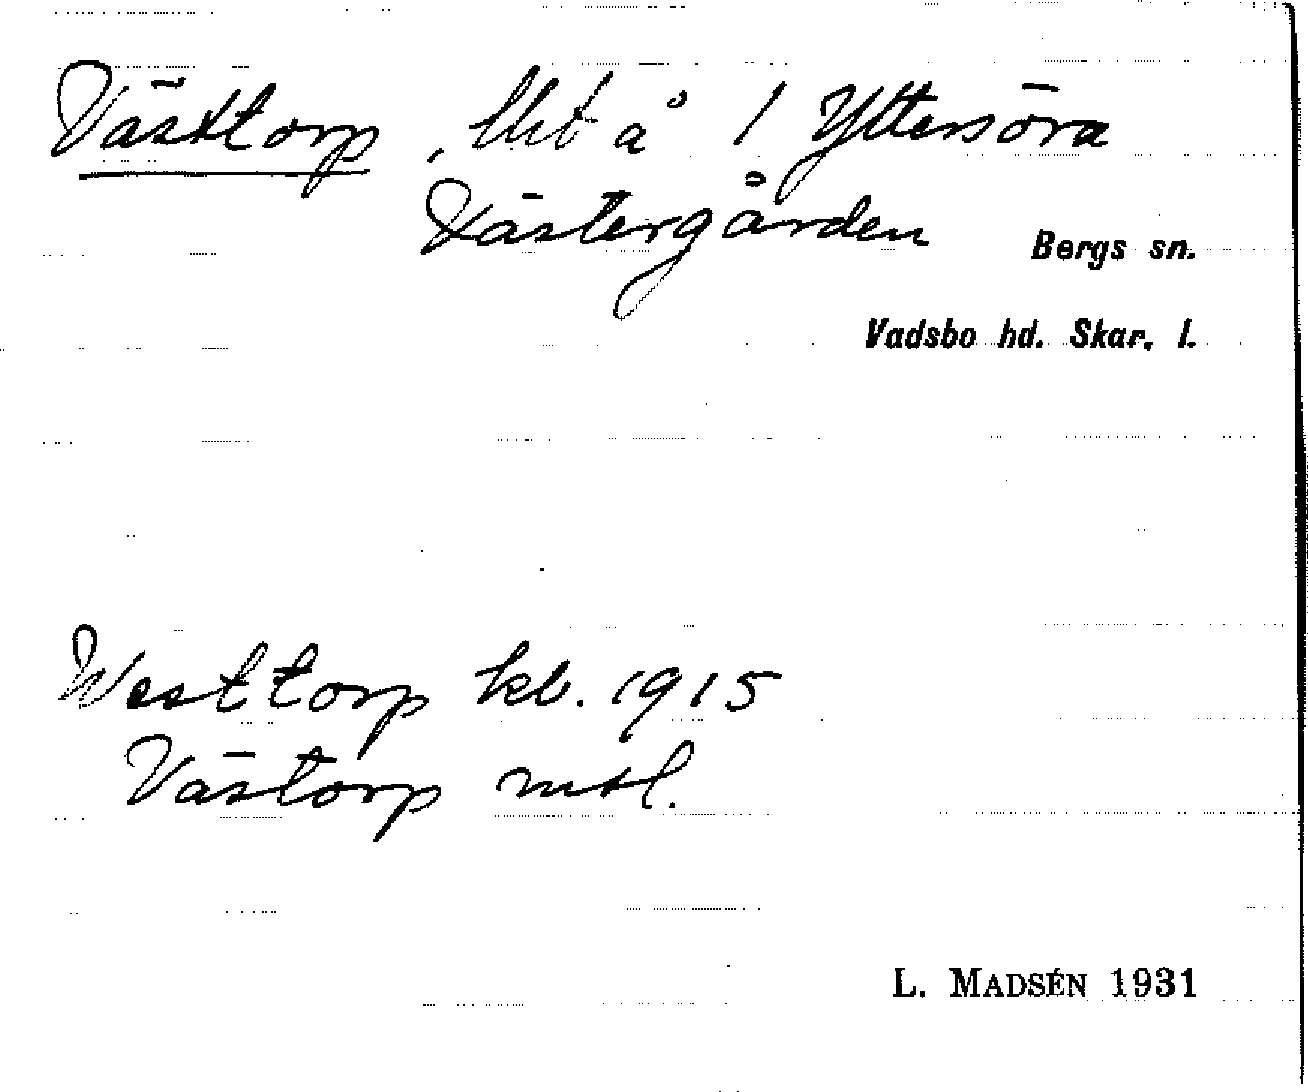 Västtorp, lht å 1 Yttersöra
Västergården
Bergs sn.
Vadsbo hd. Skar. l.
Westtorp kb. 1915
Västorp mtl.
L. MADSÉN 1931